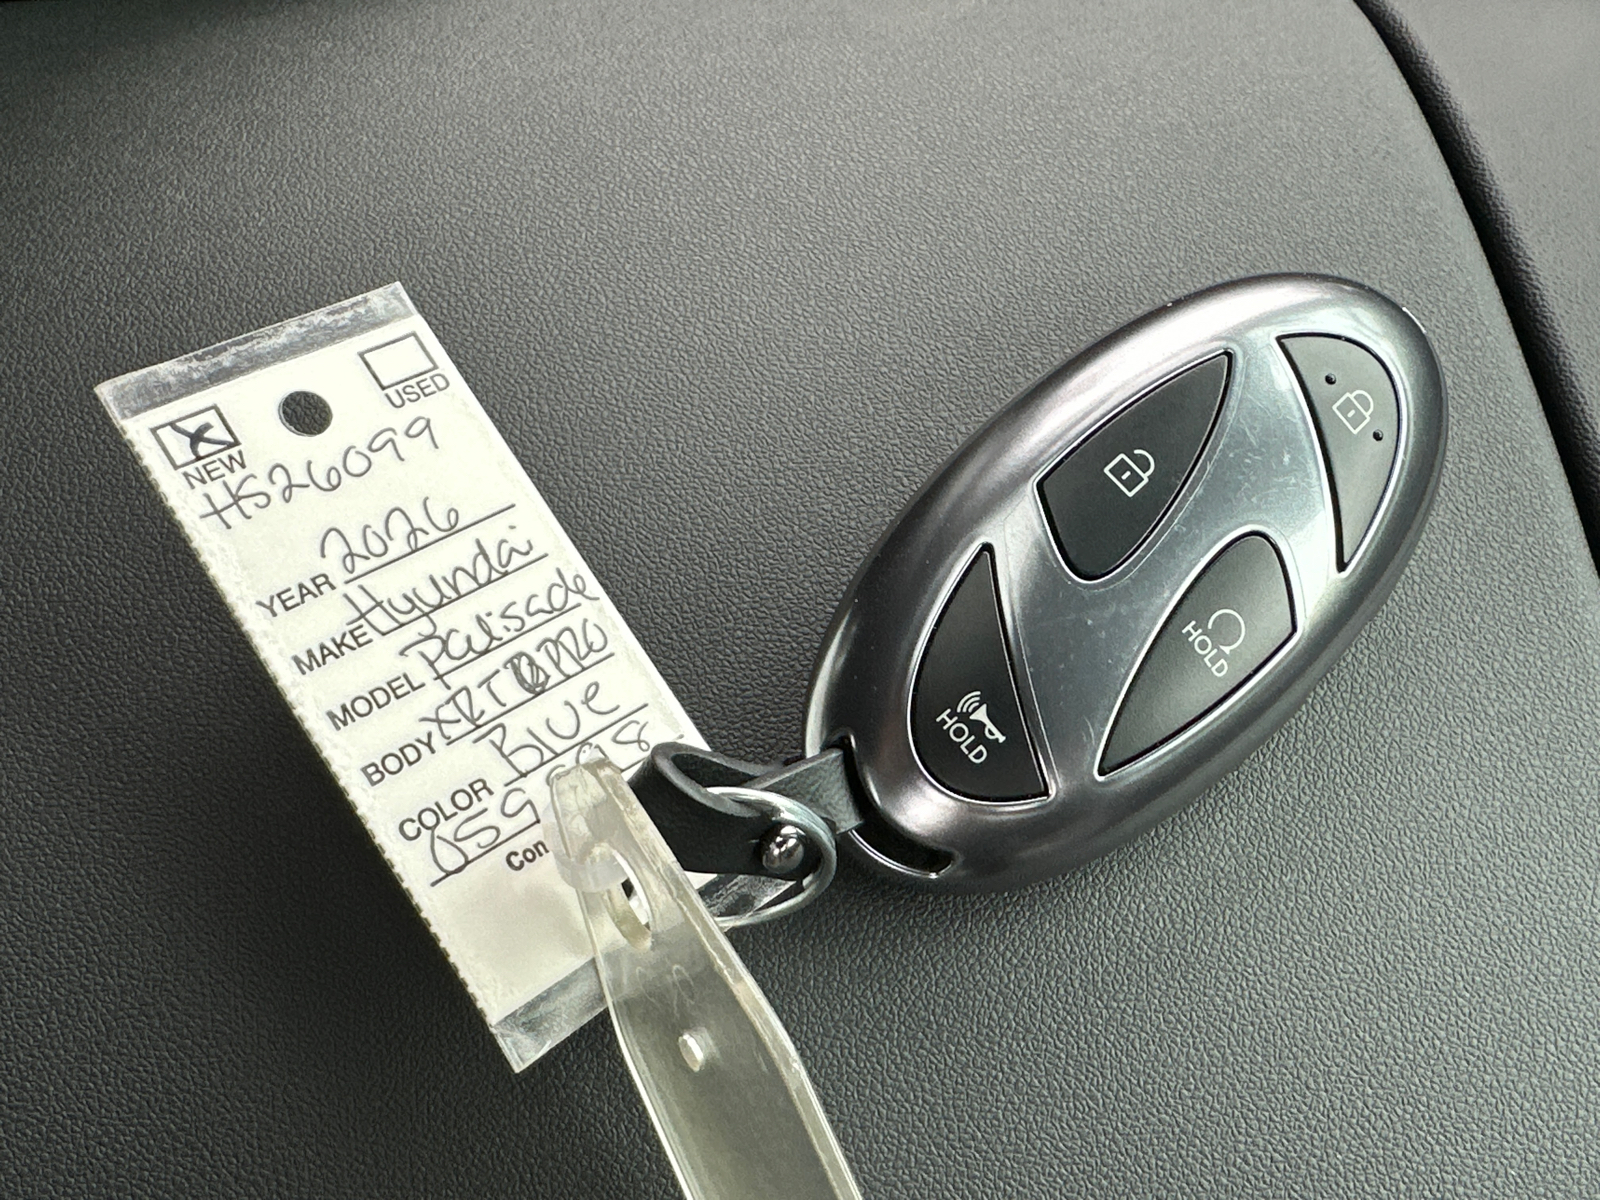 USED
NEW
HS26099
YEAR 2026
MAKE Hyundai
MODEL Palisade
BODY XRT PRO
COLOR Blue
Con
HOLD
HOLD